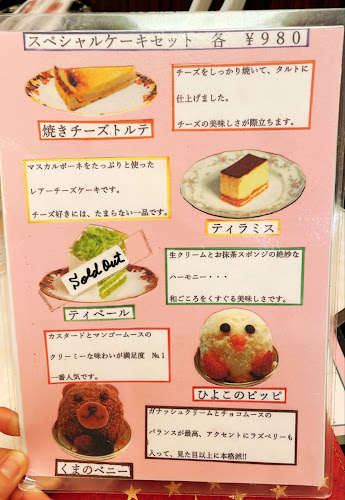 スペシャルケーキセット 各 ￥980
焼きチーズトルテ
チーズをしっかり焼いて、タルトに
仕上げました。
チーズの美味しさが際立ちます。
マスカルポーネをたっぷりと使った
レアーチーズケーキです。
チーズ好きには、たまらない一品です。
ティラミス
Sold Out
ティベール
生クリームとお抹茶スポンジの絶妙な
ハーモニー・・・
和ごころをくすぐる美味しさです。
カスタードとマンゴームースの
クリーミーな味わいが満足度 №1
一番人気です。
ひよこのピッピ
くまのベニー
ガナッシュクリームとチョコムースの
バランスが最高、アクセントにラズベリーも
入って、見た目以上に本格派!!